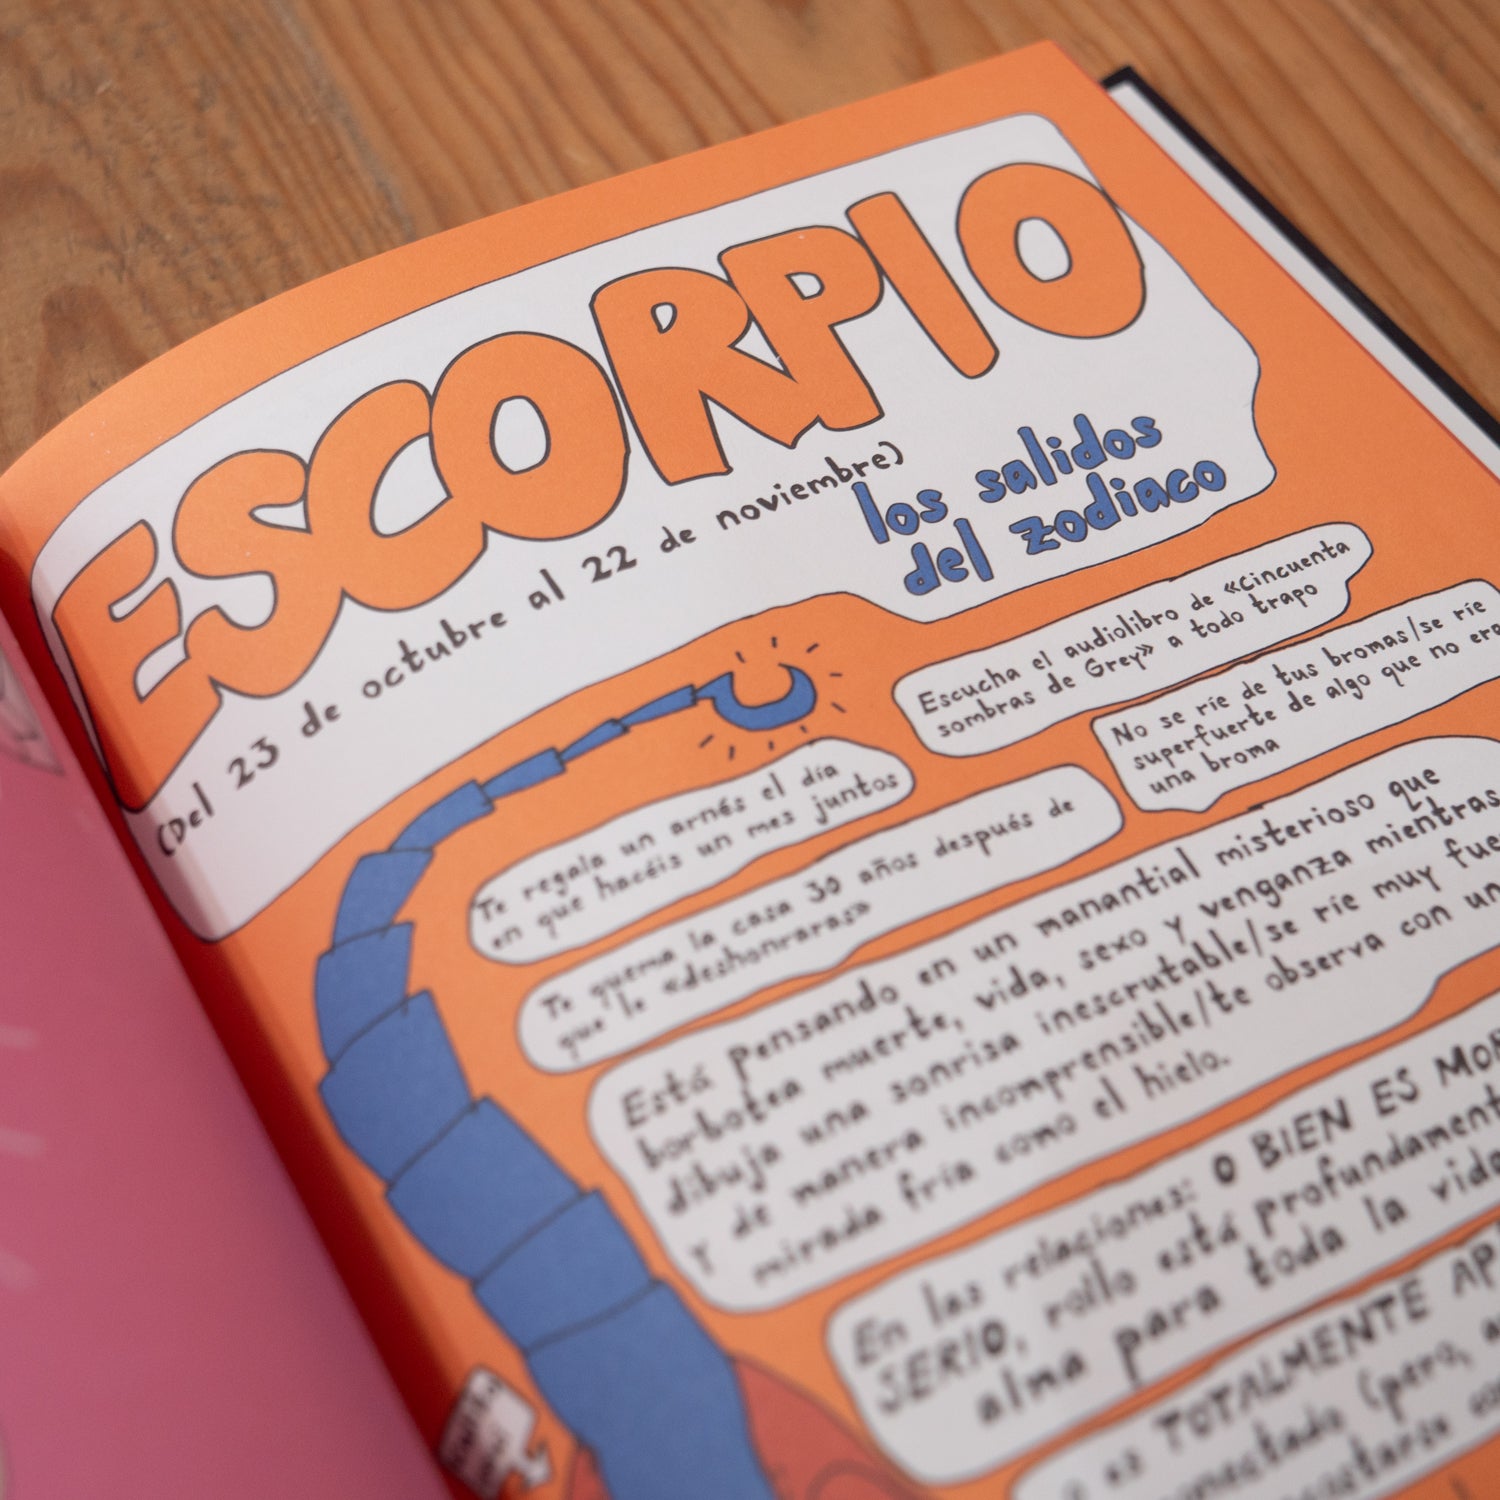 ESCORPIO
(Del 23 de octubre al 22 de noviembre)
los salidos
del zodiaco
Escucha el audiolibro de «Cincuenta
sombras de Grey» a todo trapo
No se ríe de tus bromas/se ríe
superfuerte de algo que no era
una broma
Te regala un arnés el día
en que hacéis un mes juntos
Te quema la casa 30 años después de
que le «deshonraras»
Está pensando en un manantial misterioso que
borbotea muerte, vida, sexo y venganza mientras
dibuja una sonrisa inescrutable/se ríe muy
y de manera incomprensible/te observa con
mirada fría como el hielo.
En las relaciones: O BIEN ES
SERIO, rollo está
alma para toda la vida
o es TOTALMENTE
(pero,